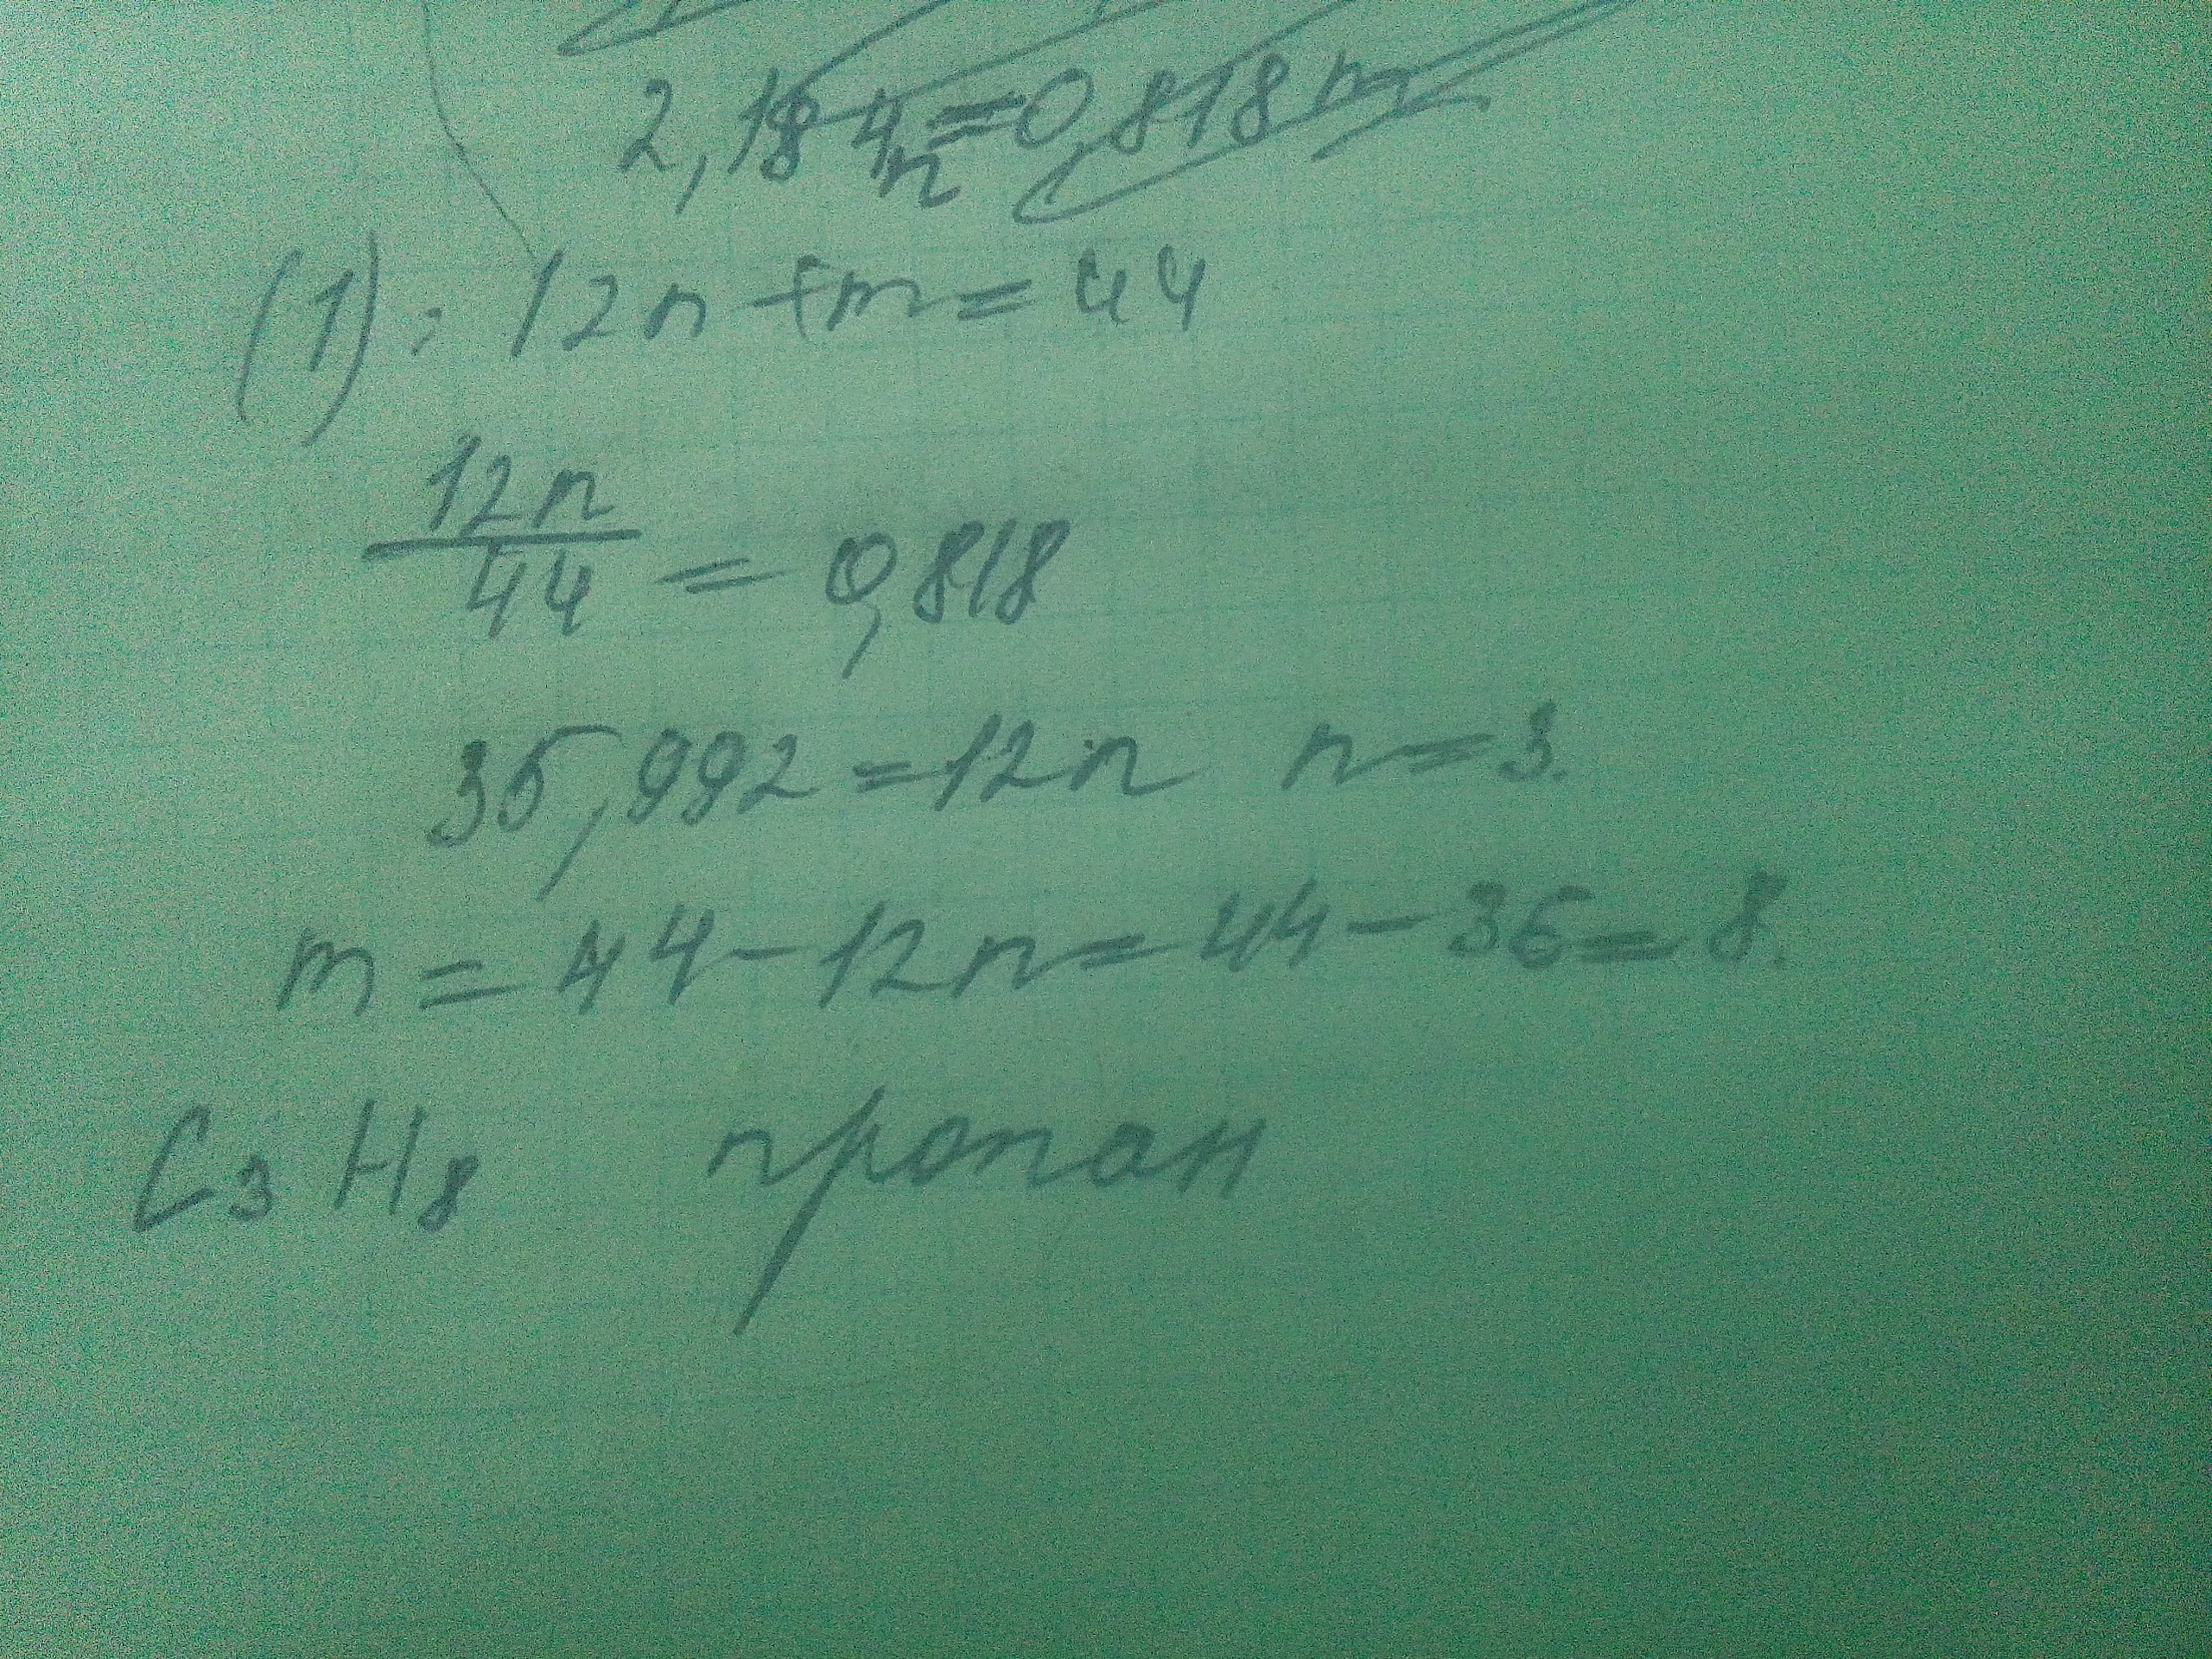 2,184n=0,818m
(1): 12n+m=44
12n/44 = 0,818
35,992=12n n=3.
m=44-12n=44-36=8.
C3H8 пропан